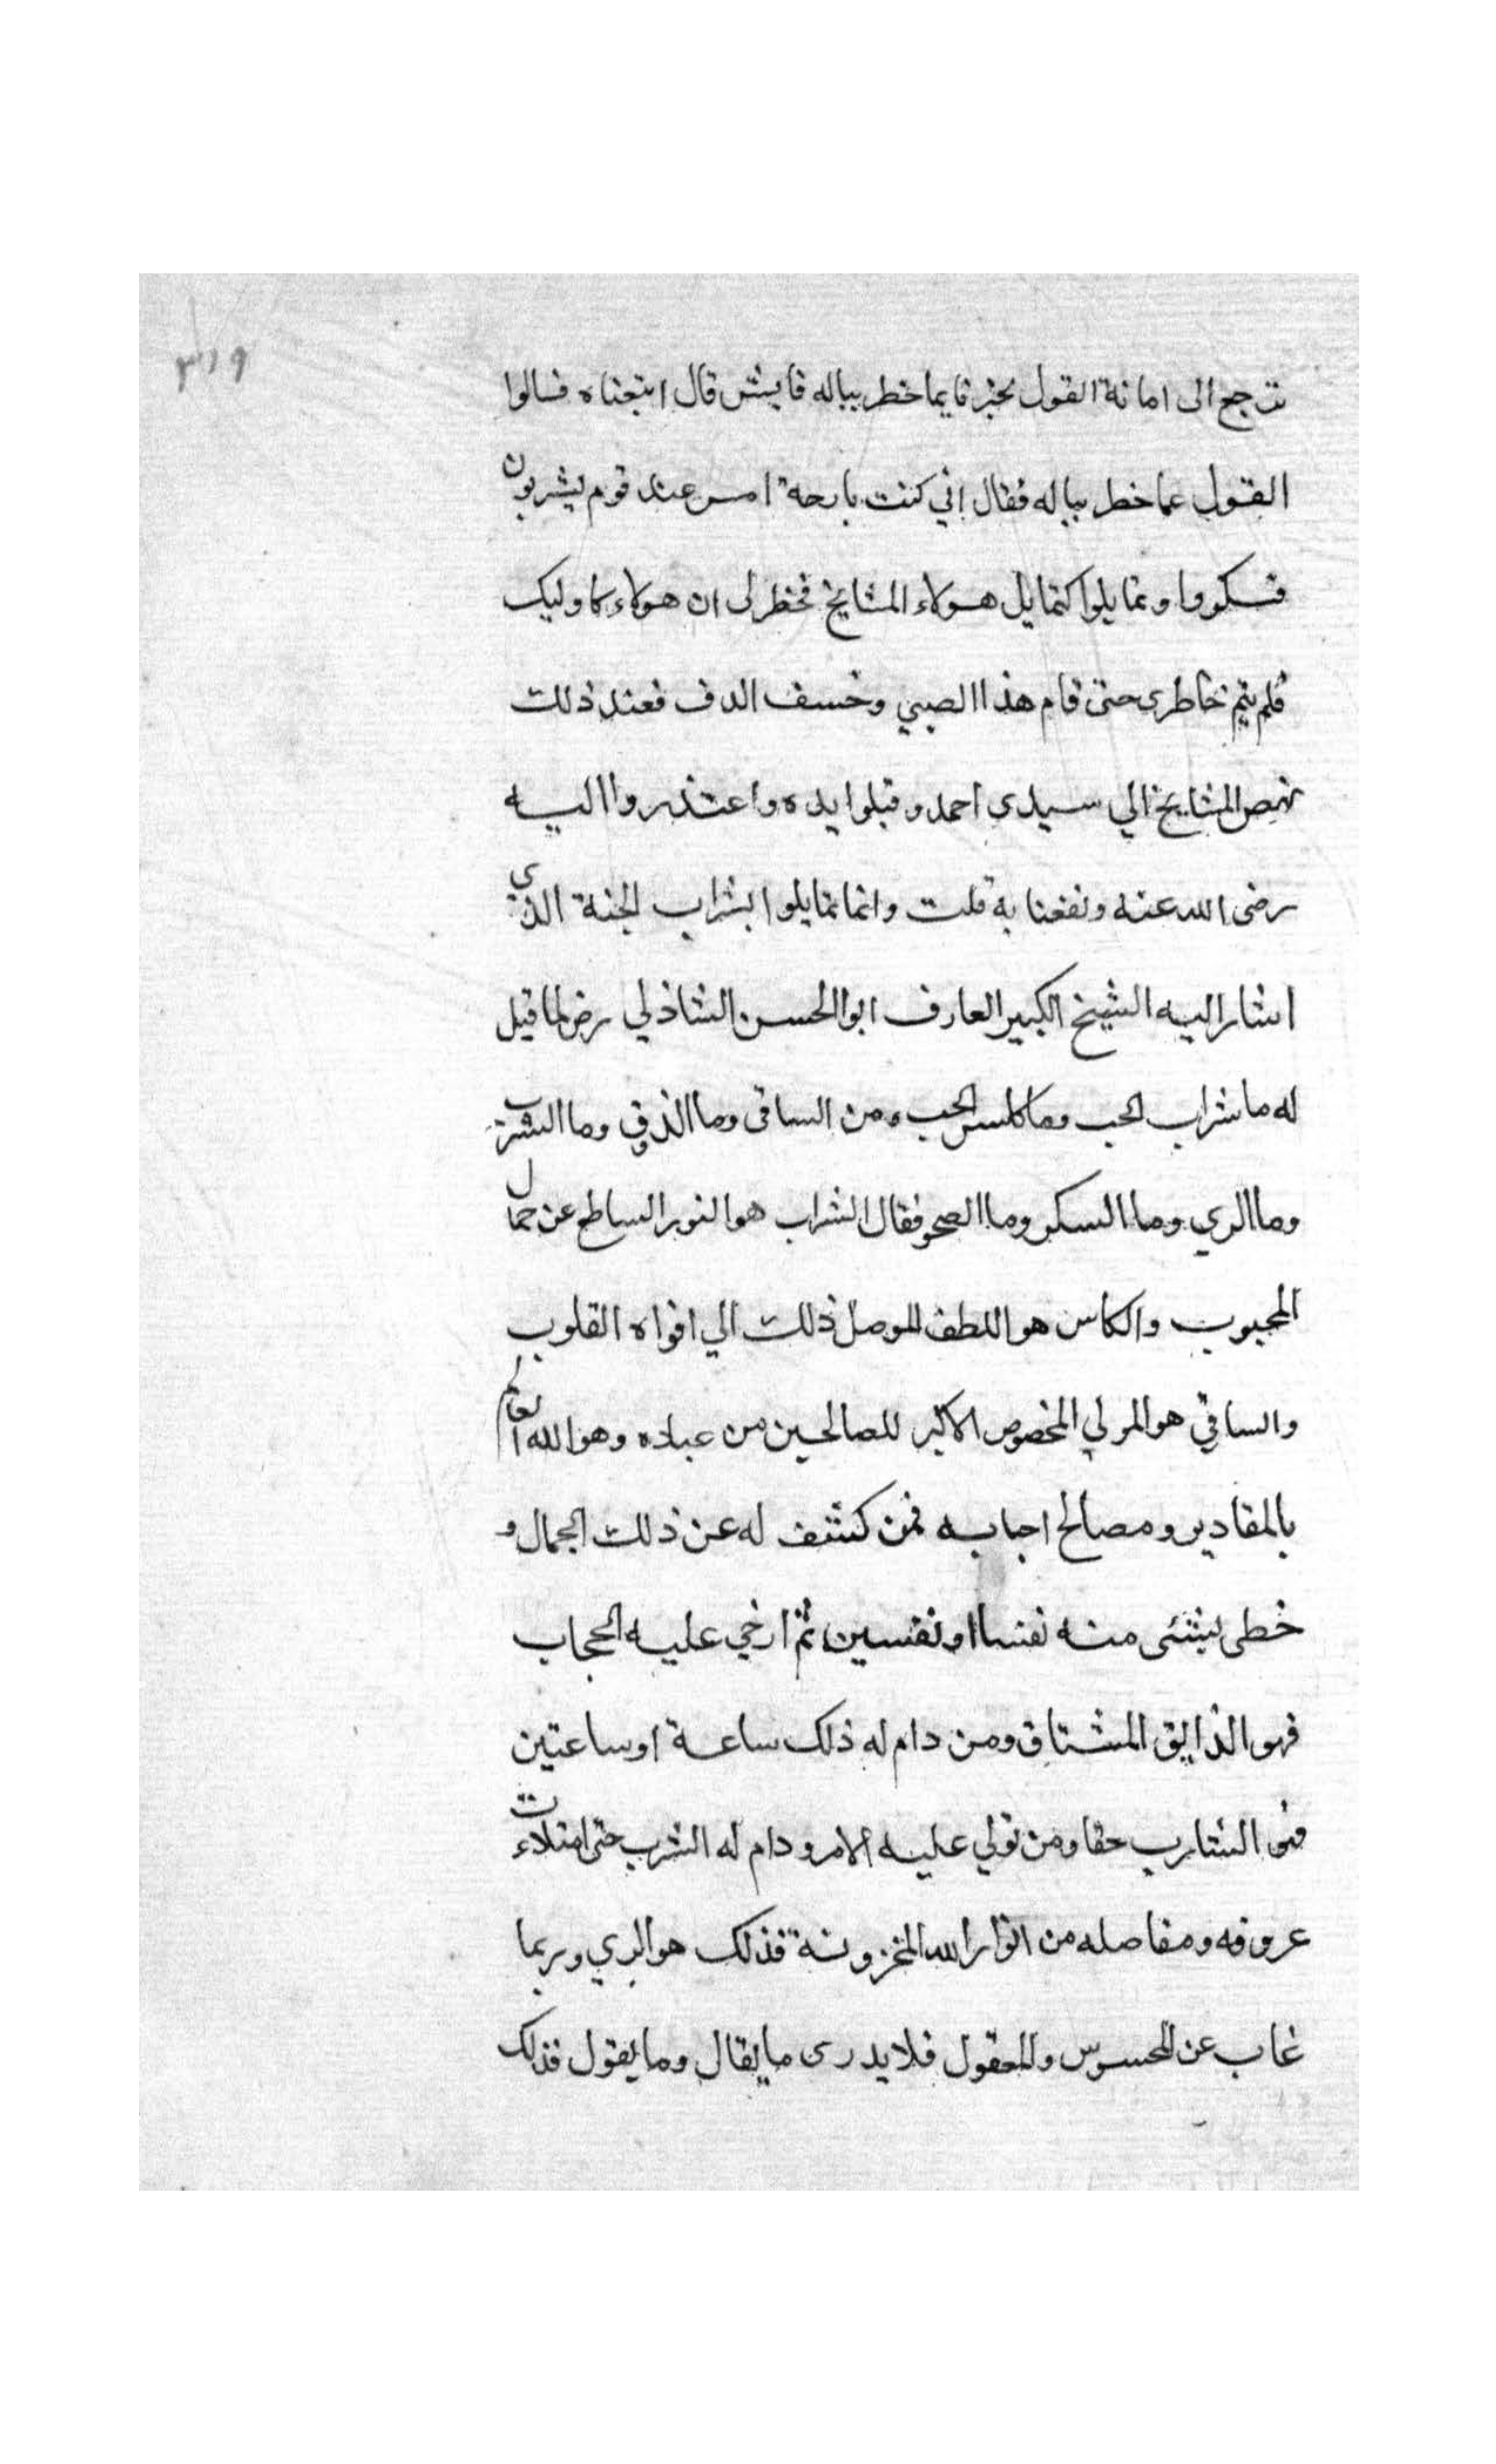 ٣١٩
نرجع الى امانة القول يخبرنا بما خطر بباله فايش قال اتبعناه فسالوا
القول عما خطر بباله فقال اني كنت بارحة امس عند قوم يشربون
فسكروا وتمايلوا كتمايل هولاء المشايخ فخطر لى ان هولاء كاوليك
فلم يتم خاطرى حتى قام هذا الصبي وخسف الدف فعند ذلك
نهض المشايخ الي سيدى احمد وقبلوا يده واعتذروا اليه
رضى الله عنه ونفعنا به قلت وانما تمايلوا بشراب الجنة الذي
اشار اليه الشيخ الكبير العارف ابوا الحسن الشاذلي رض لما قيل
له ما شراب الحب وما كاس الحب ومن الساقى وما الذوق وما الشرب
وما الري وما السكر وما الصحو فقال الشراب هو النور الساطع عن جمال
المحبوب والكاس هو اللطف الموصل ذلك الي افواه القلوب
والساقي هو المولي المخصوص الاكبر للصالحين من عباده وهو الله العالم
بالمقادير ومصالح احبابه فمن كشف له عن ذلك الجمال و
خطى بشى منه نفسا او نفسين ثم ارخي عليه الحجاب
فهو الذايق المشتاق ومن دام له ذلك ساعة او ساعتين
فهو الشارب حقا ومن تولي عليه الامر ودام له الشرب حتى امتلاءت
عروقه ومفاصله من انوار الله المخزونة فذلك هو الري وربما
غاب عن المحسوس والمعقول فلا يدرى ما يقال وما يقول فذلك